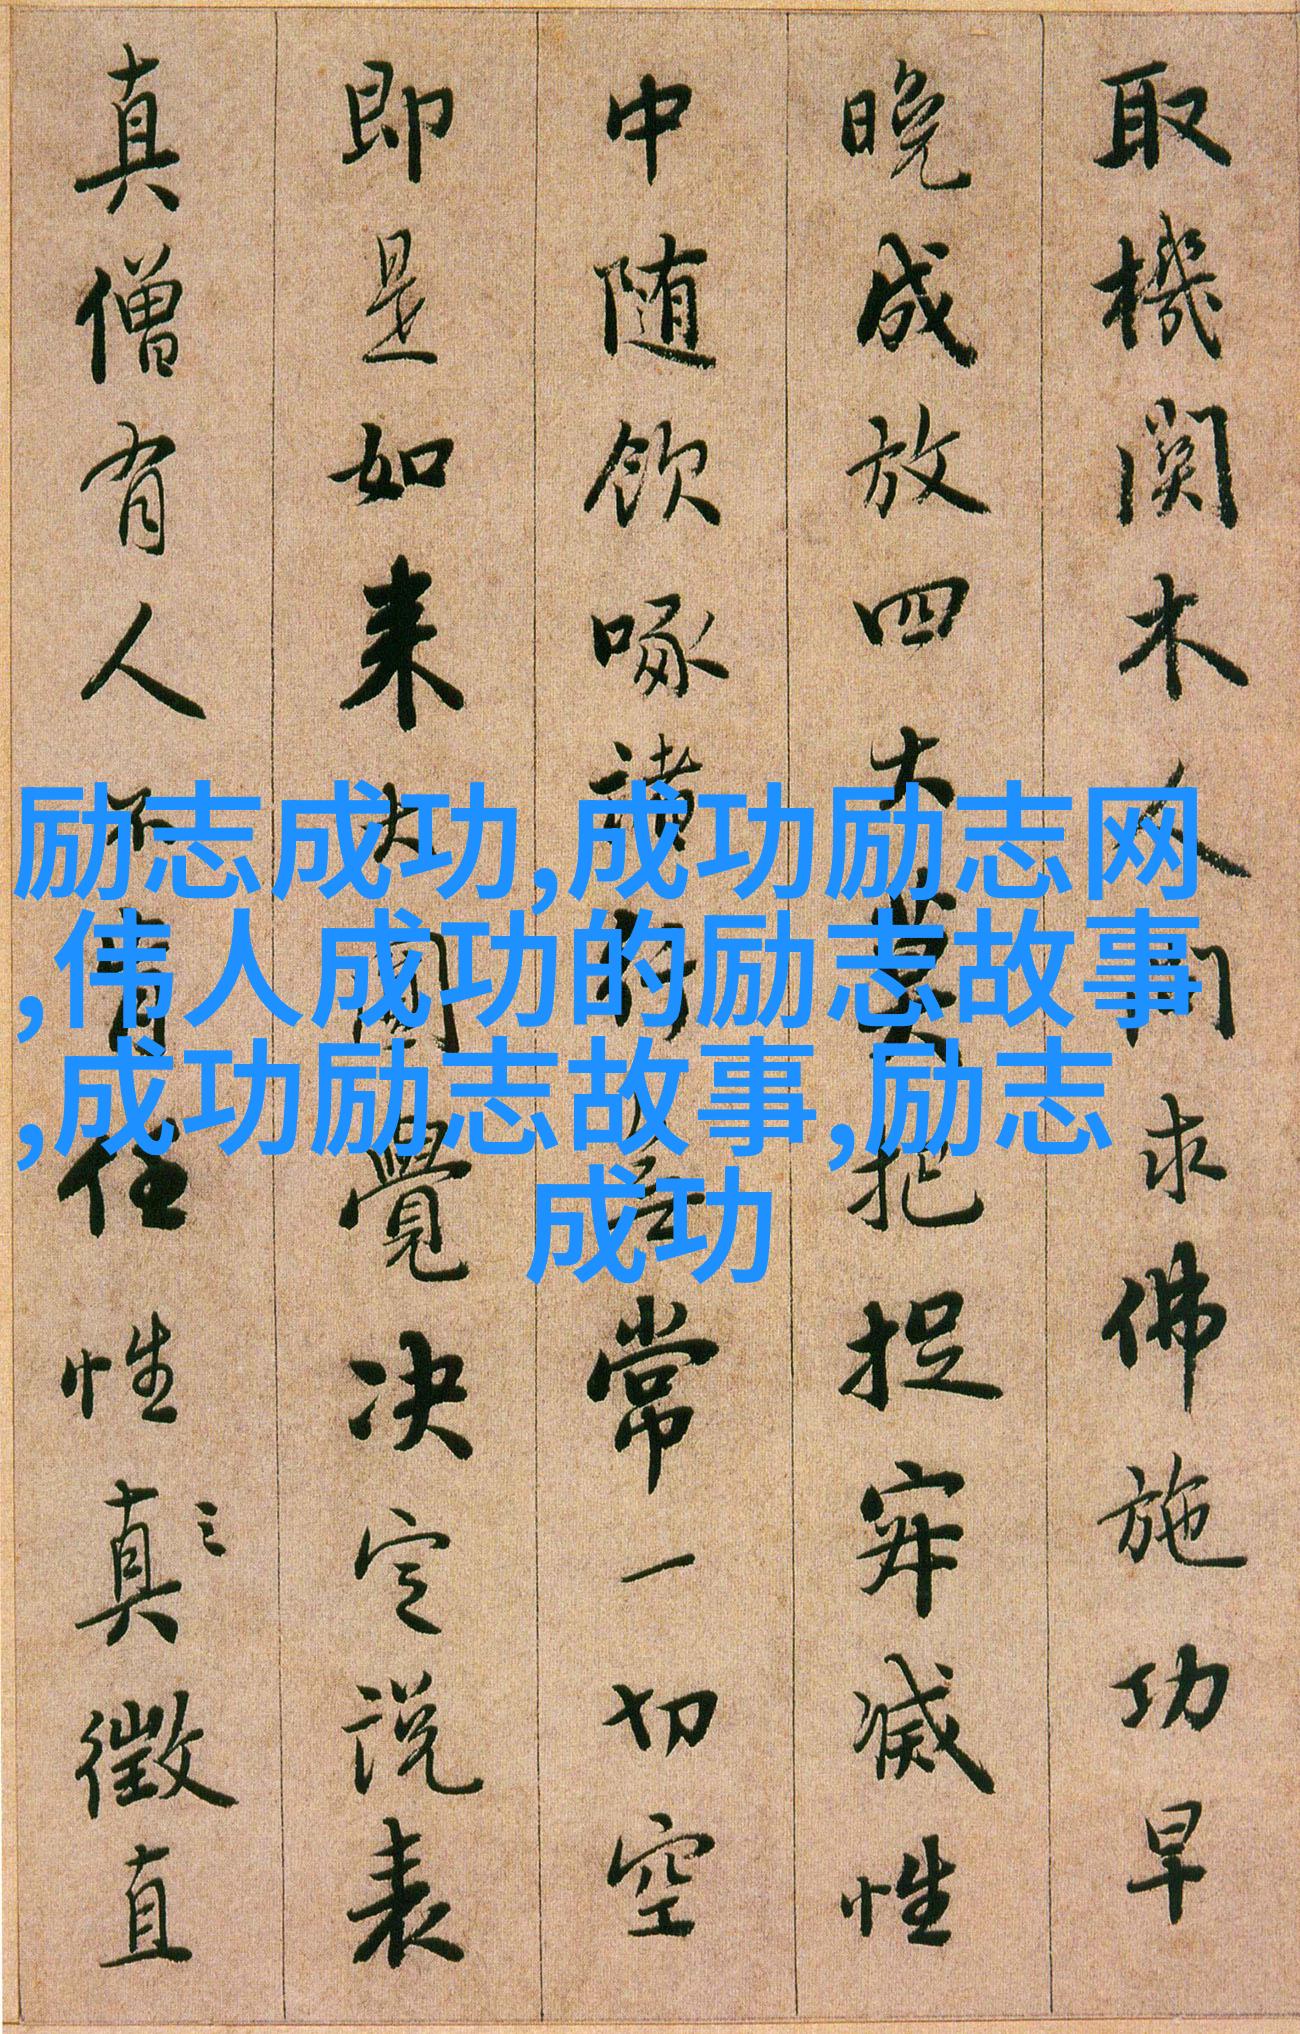 取機関木人問求佛施功早
晚成放四大莫把捉寂滅性
中随飲啄諸行無常一切空
即是如来大圓覺决定説表
真僧有人不肯任性真徵直
励志成功,成功励志网
,伟人成功的励志故事
,成功励志故事,励志
成功